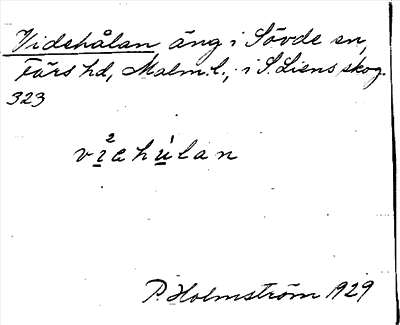 Vidshålan, äng i Sövde sn,
Färs hd, Malm. l., i S. Liens skog.
323
vi²ehu̍lan
P. Holmström 1929